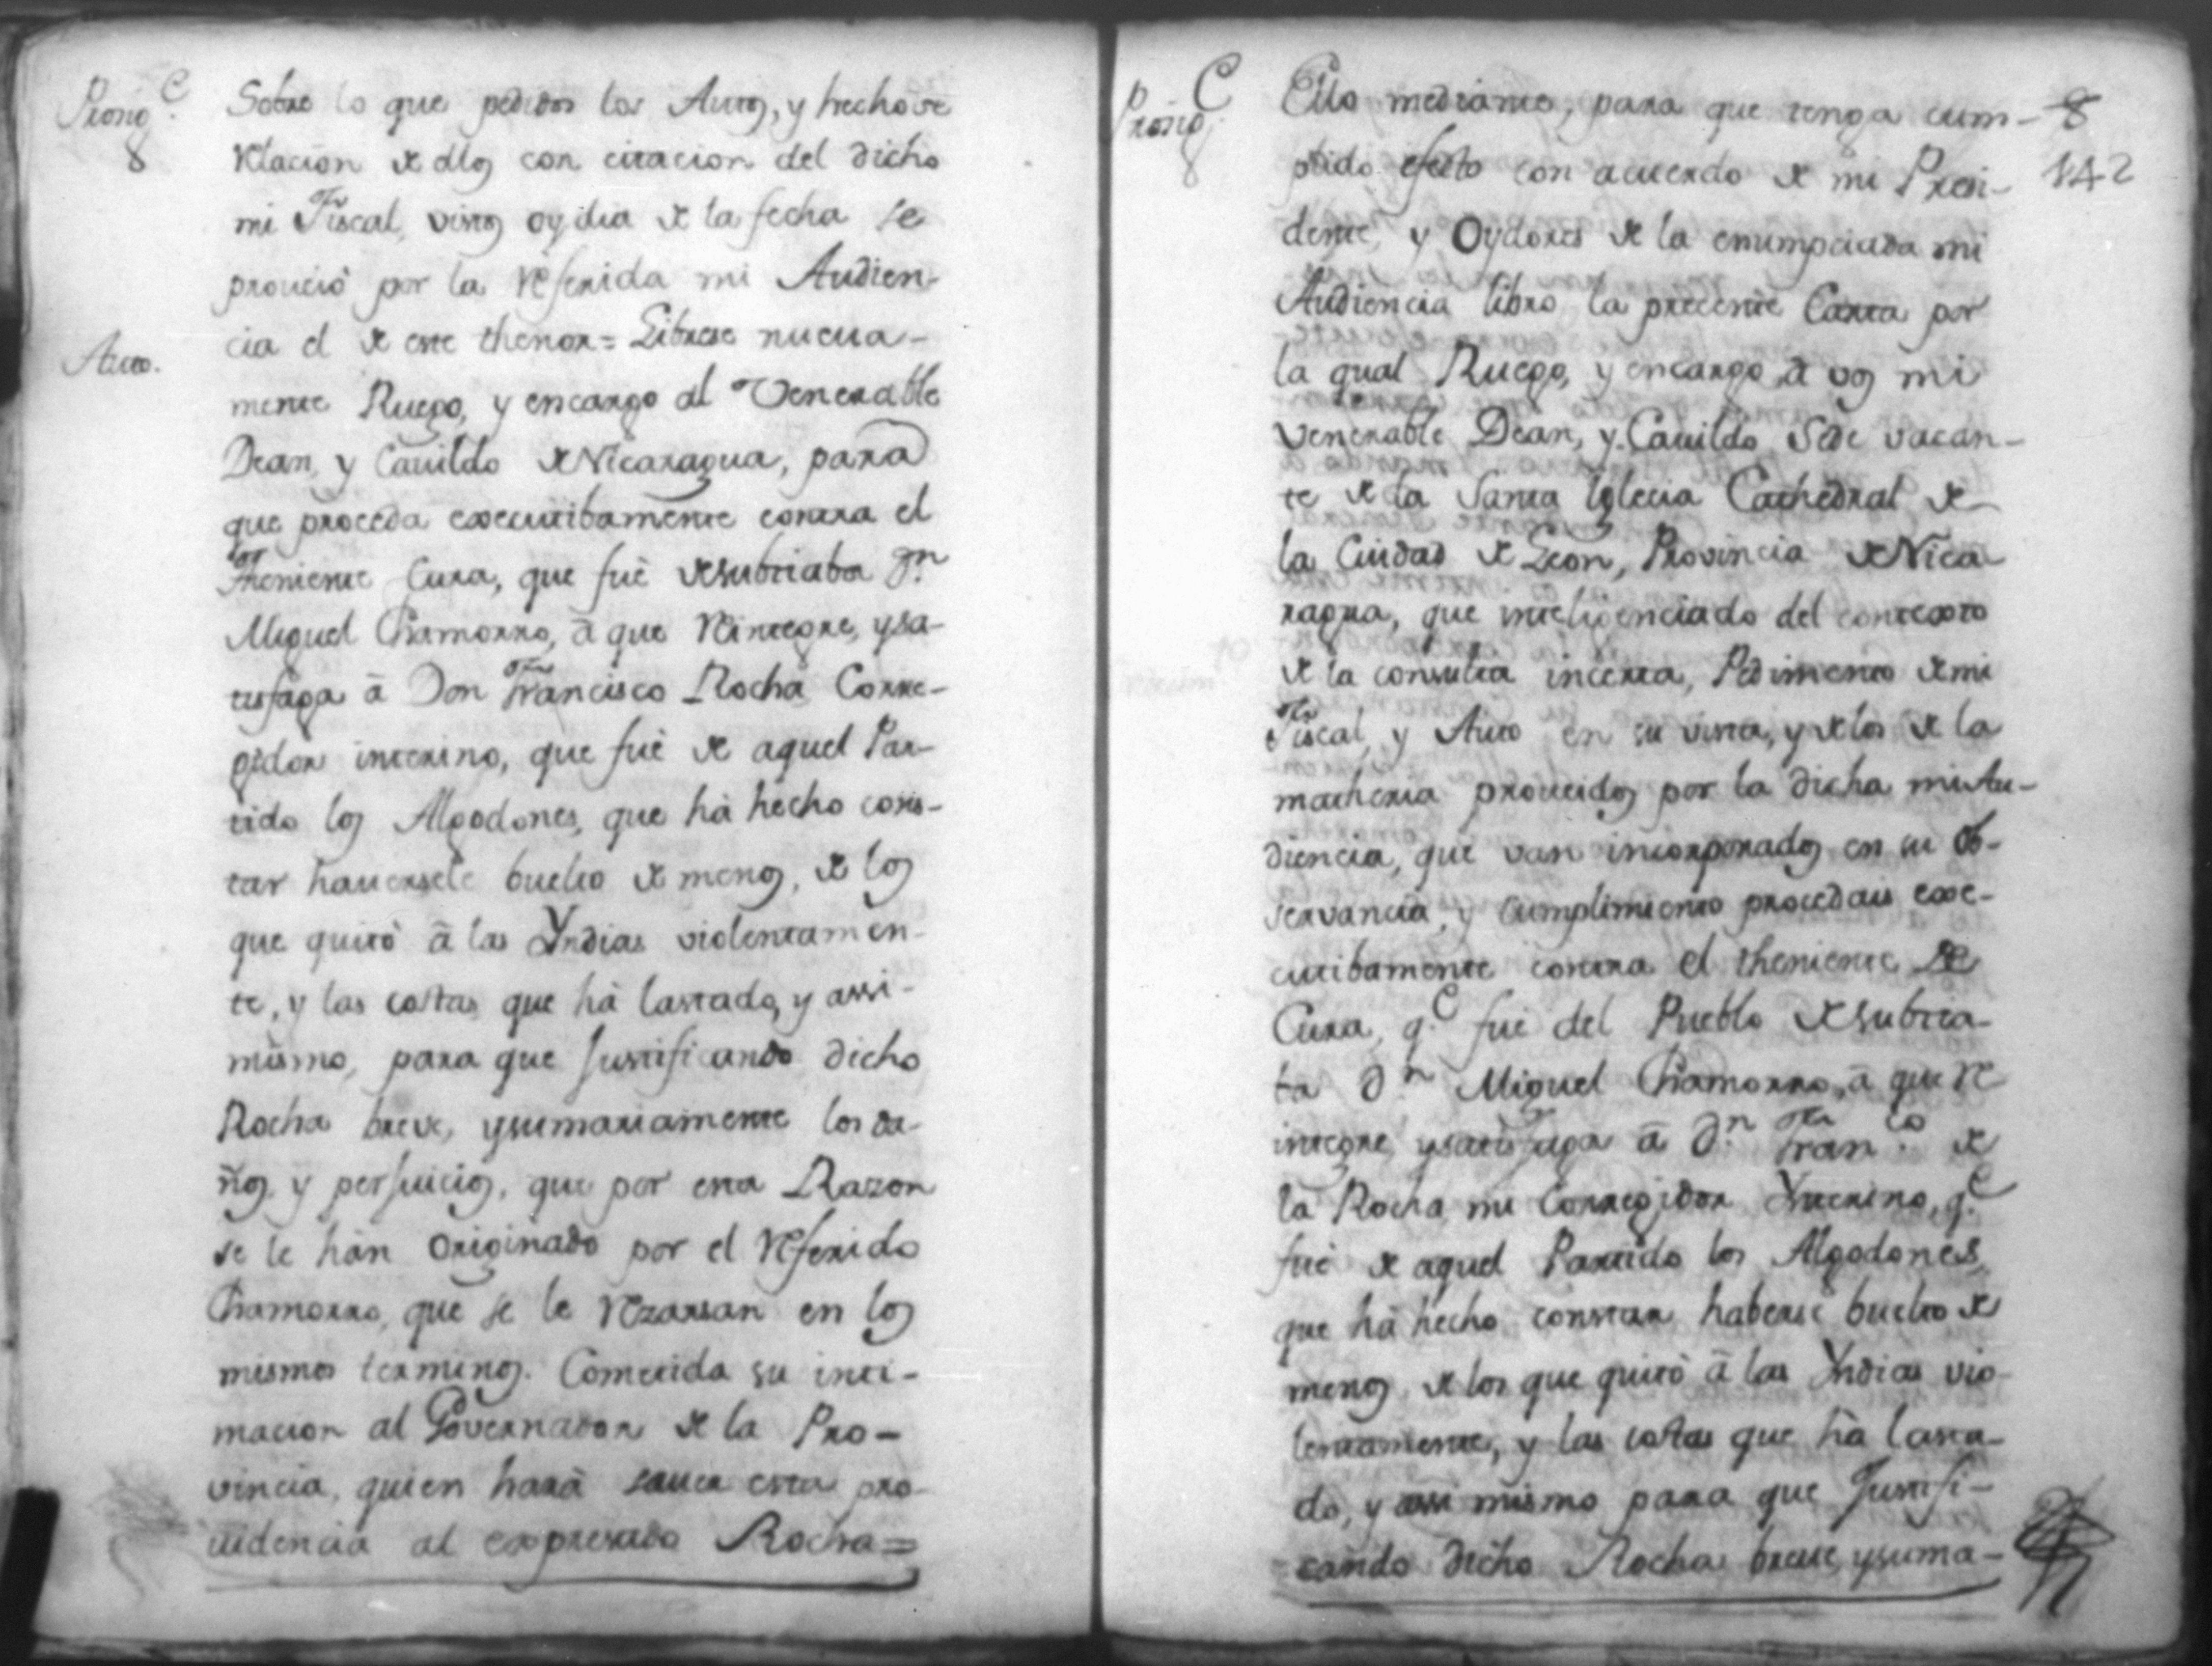 Prosig.e
8
Sobre lo que pedidos los Autos, y hechose
relacion de ellos con citacion del dicho
mi Fiscal, vistos oy dia de la fecha se
proueió por la referida mi Audien-
Auto.
cia el de este thenor = Librese nueua-
mente Ruego, y encargo al Venerable
Dean, y Cauildo de Nicaragua, para
que proceda executibamente contra el
Theniente Cura, que fué de Subtiaba Dn.
Miguel Chamorro, á que reintegre, y sa-
tisfaga á Don Francisco Rocha Corre-
gidor interino, que fué de aquel Par-
tido los Algodones, que há hecho cons-
tar hauersele buelto de menos, de los
que quitó á las Yndias violentamen-
te, y las costas que há lastado, y assi-
mismo, para que Justificando dicho
Rocha breve, y sumariamente los da-
ños, y perjuicios, que por esta Razon
se le hán originado por el referido
Chamorro, que se le rezarsan en los
mismos terminos. Cometida su inti-
macion al Governador de la Pro-
vincia, quien hará sauer esta pro-
uidencia al expresado Rocha =
Prosig.e
8
Ello mediante, para que tenga cum- 8
plido efecto con acuerdo de mi Presi- 142
dente, y Oydores de la enumpciada mi
Audiencia libro la precente Carta por
la qual Ruego, y encargo á vos mi
Venerable Dean, y Cauildo Sede vacan-
te de la Santa Iglecia Cathedral de
la Ciudad de Leon, Provincia de Nica
ragua, que inteligenciado del contexto
de la consulta incerta, Pedimento de mi
Fiscal, y Auto en su vista, y de los de la
matheria proueidos por la dicha mi Au-
diencia, que van incorporados en su ob-
servancia, y cumplimiento procedais exe-
cutibamente contra el theniente de
Cura, q.e fué del Pueblo de Subtia-
ba Dn. Miguel Chamorro, á que re
integre, y satisfaga á Dn. Fran.co de
la Rocha mi Corregidor Ynterino, q.e
fué de aquel Partido los Algodones,
que há hecho constar haberse buelto de
menos de los que quitó á las Yndias vio-
lentamente, y las costas que há lasta-
do, y assi mismo para que Justifi-
cando dicho Rocha breue, y suma-